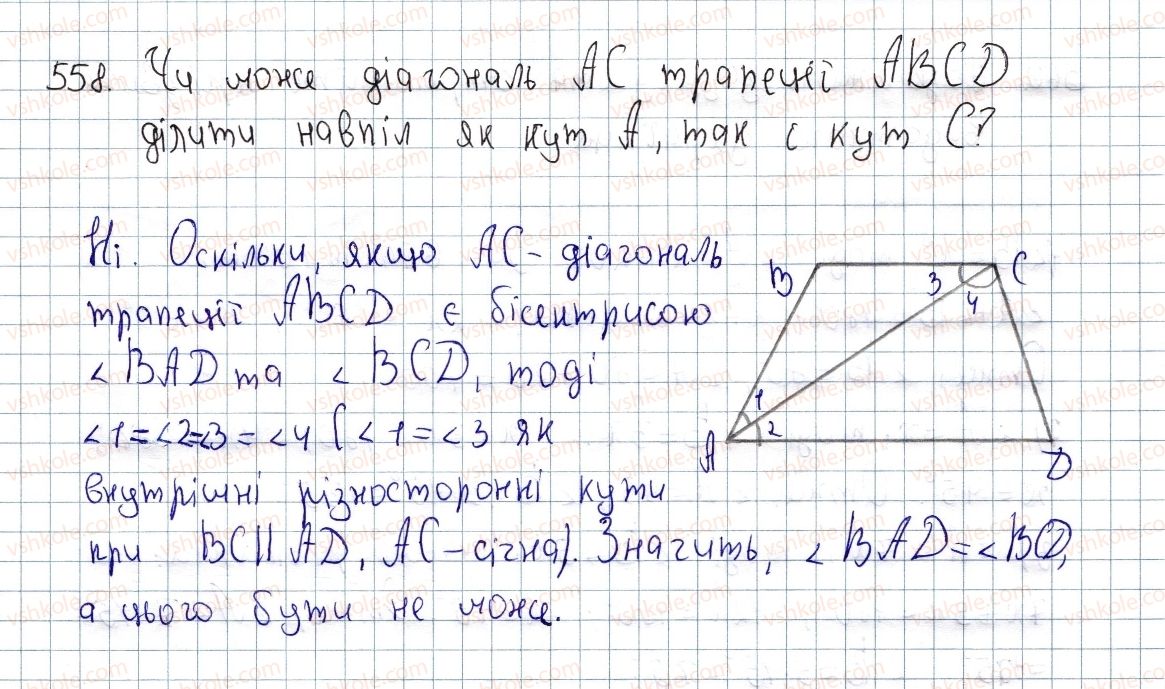 558. Чи може діагональ АС трапеції ABCD
ділити навпіл як кут А, так і кут С?
Ні. Оскільки, якщо АС - діагональ
трапеції ABCD є бісектрисою
∠BAD та ∠BCD, тоді
∠1=∠2=∠3=∠4 (∠1=∠3 як
внутрішні різносторонні кути
при BC||AD, AC-січна). Значить, ∠BAD=∠BCD,
а цього бути не може.
B
3
C
4
1
A
2
D